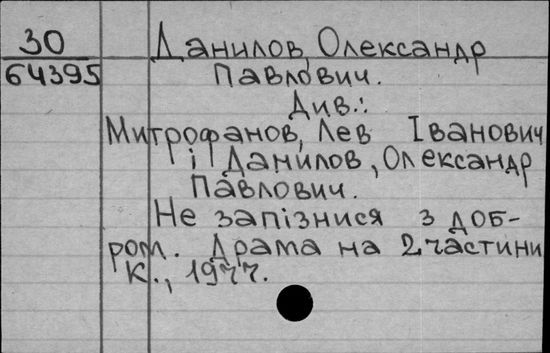 30
64395
Данилов, Олександр
Павлович.
Див.:
Митрофанов, Лев Іванович
і Данилов, Олександр
Павлович.
Не запізнися з доб-
ром. Драма на 2 частини
К., 1977.